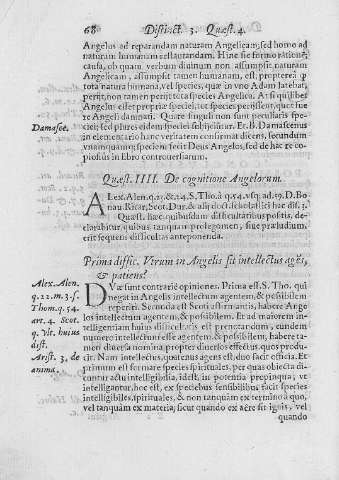 68 Distinct. 3. Quæst. 4.
Angelus ad reparandam naturam Angelicam, sed homo ad
naturam humanam restaurandam. Hinc sic formo rationẽ;
causa, ob quam verbum diuinum non assumpsit naturam
Angelicam, assumpsit tamen humanam, est, propterea q
tota natura humana, vel species, quæ in vno Adam latebat,
perijt, non tamen perijt tota species Angelica. At si quilibet
Angelus esset propriæ speciei, tot species perijssent, quot fue
re Angeli damnati. Quare singuli non sunt peculiaris spe-
ciei; sed plures eidem speciei subijciuntur. Et B. Damascenus
Damasce.
in elementario hanc veritatem confirmat dicens, secundum
vnamquamq; speciem fecit Deus Angelos, sed de hac re co
piosius in libro controuersiarum.
Quæst. IIII. De cognitione Angelorum.
ALex. Alen. q. 23. & 24. S. Tho. à q. 54. vsq; ad 59. D. Bo
na. Ricar. Scot. Dur. & alij doct. scholastici hac dist. 3.
Quæst. hæc quibusdam difficultatibus positis, de-
clarabitur, quibus tanquam prolegomen, siue præludium,
erit sequens difficultas anteponenda.
Prima diffic. Vtrum in Angelis sit intellectus agẽs,
& patiens?
Alex. Alen.
q. 22. m. 3. s.
Thom. q. 54.
art. 4. Scot.
q. Vlt. huius
dist.
Arist. 3. de
anima.
DVæ sunt contrariæ opiniones. Prima est S. Tho. qui
negat in Angelis intellectum agentem, & possibilem
reperiri. Secunda est Scoti asserentis, habere Ange
los intellectum agentem, & possibilem. Et ad maiorem in-
telligentiam huius difficultatis est prænotandum, eundem
numero intellectum esse agentem, & possibilem, habere ta-
men diuersa nomina propter diuersos effectus, quos produ-
cit. Nam intellectus, quatenus agens est, duo facit officia. Et
primum est formare species spirituales, per quas obiecta di-
cuntur actu intelligibilia, idest, in potentia propinqua, vt
intelligantur, hoc est, ex speciebus sensibilibus facit species
intelligibiles, spirituales, & non tanquàm ex termino à quo,
vel tanquàm ex materia, sicut quando ex aëre fit ignis, vel
quando